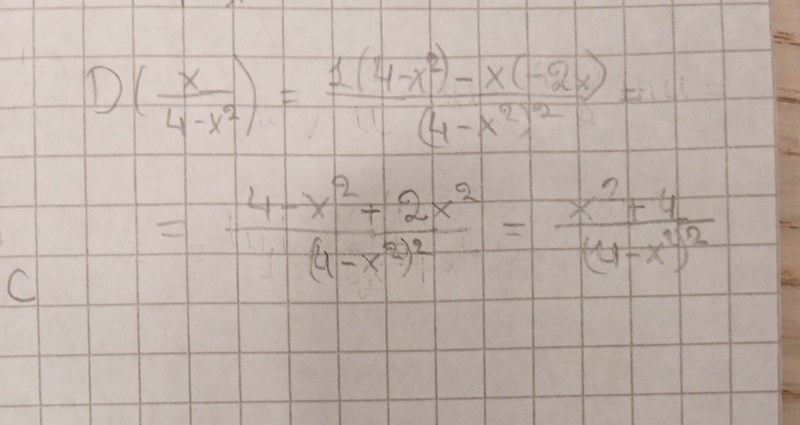 D(x/(4-x²)) = (1(4-x²)-x(-2x))/(4-x²)² =
= (4-x²+2x²)/(4-x²)² = (x²+4)/(4-x²)²
C